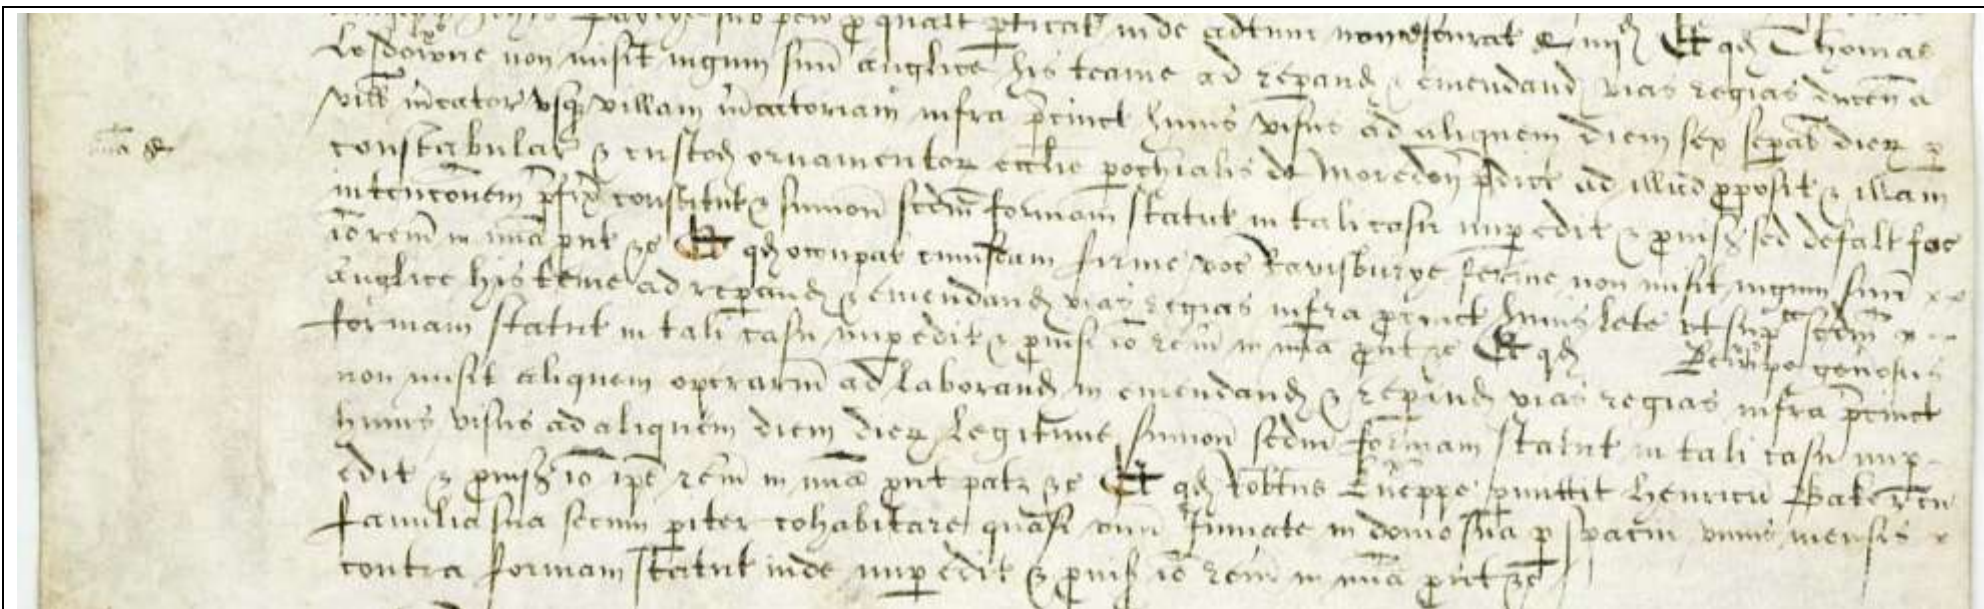 p qualt pticat inde adtunc non escurat iiij d Et qd Thomas
Lesdowne non misit iugum suu anglice his teame ad repand & emendand vias regias ducen a
vill mcator usq villam mcatoriam infra pcinct huius visus ad aliquem diem sex sepal dier p
mia
constabular & custod ornamentor ecclie pochialis de Moredon pdict ad illud pposit & illam
intenconem pfix constitut & sumon scdm formam statut in tali casu nup edit & puis sed defalt fec
io rem in mia put &c Et qd occupat cuiusdam firme voc Ravisburye ferme non misit iugum suu
anglice his teme ad repand & emendand vias regias infra pcinct huius lete ut sup scdm
formam statut in tali casu nup edit & puis io rem in mia put &c Et qd generosus
non misit aliquem operariu ad laborand in emendand & repand vias regias infra pcinct
huius visus ad aliquem diem dier legittime sumon scdm formam statut in tali casu nup
edit & puis io ipe rem in mia put patz &c Et qd Robtus pmittit Henricu Baker cu
familia sua secum piter cohabitare quasi unu Inmate in domo sua p spaciu unius mensis
contra formam statut inde nup edit & puis io rem in mia put &c